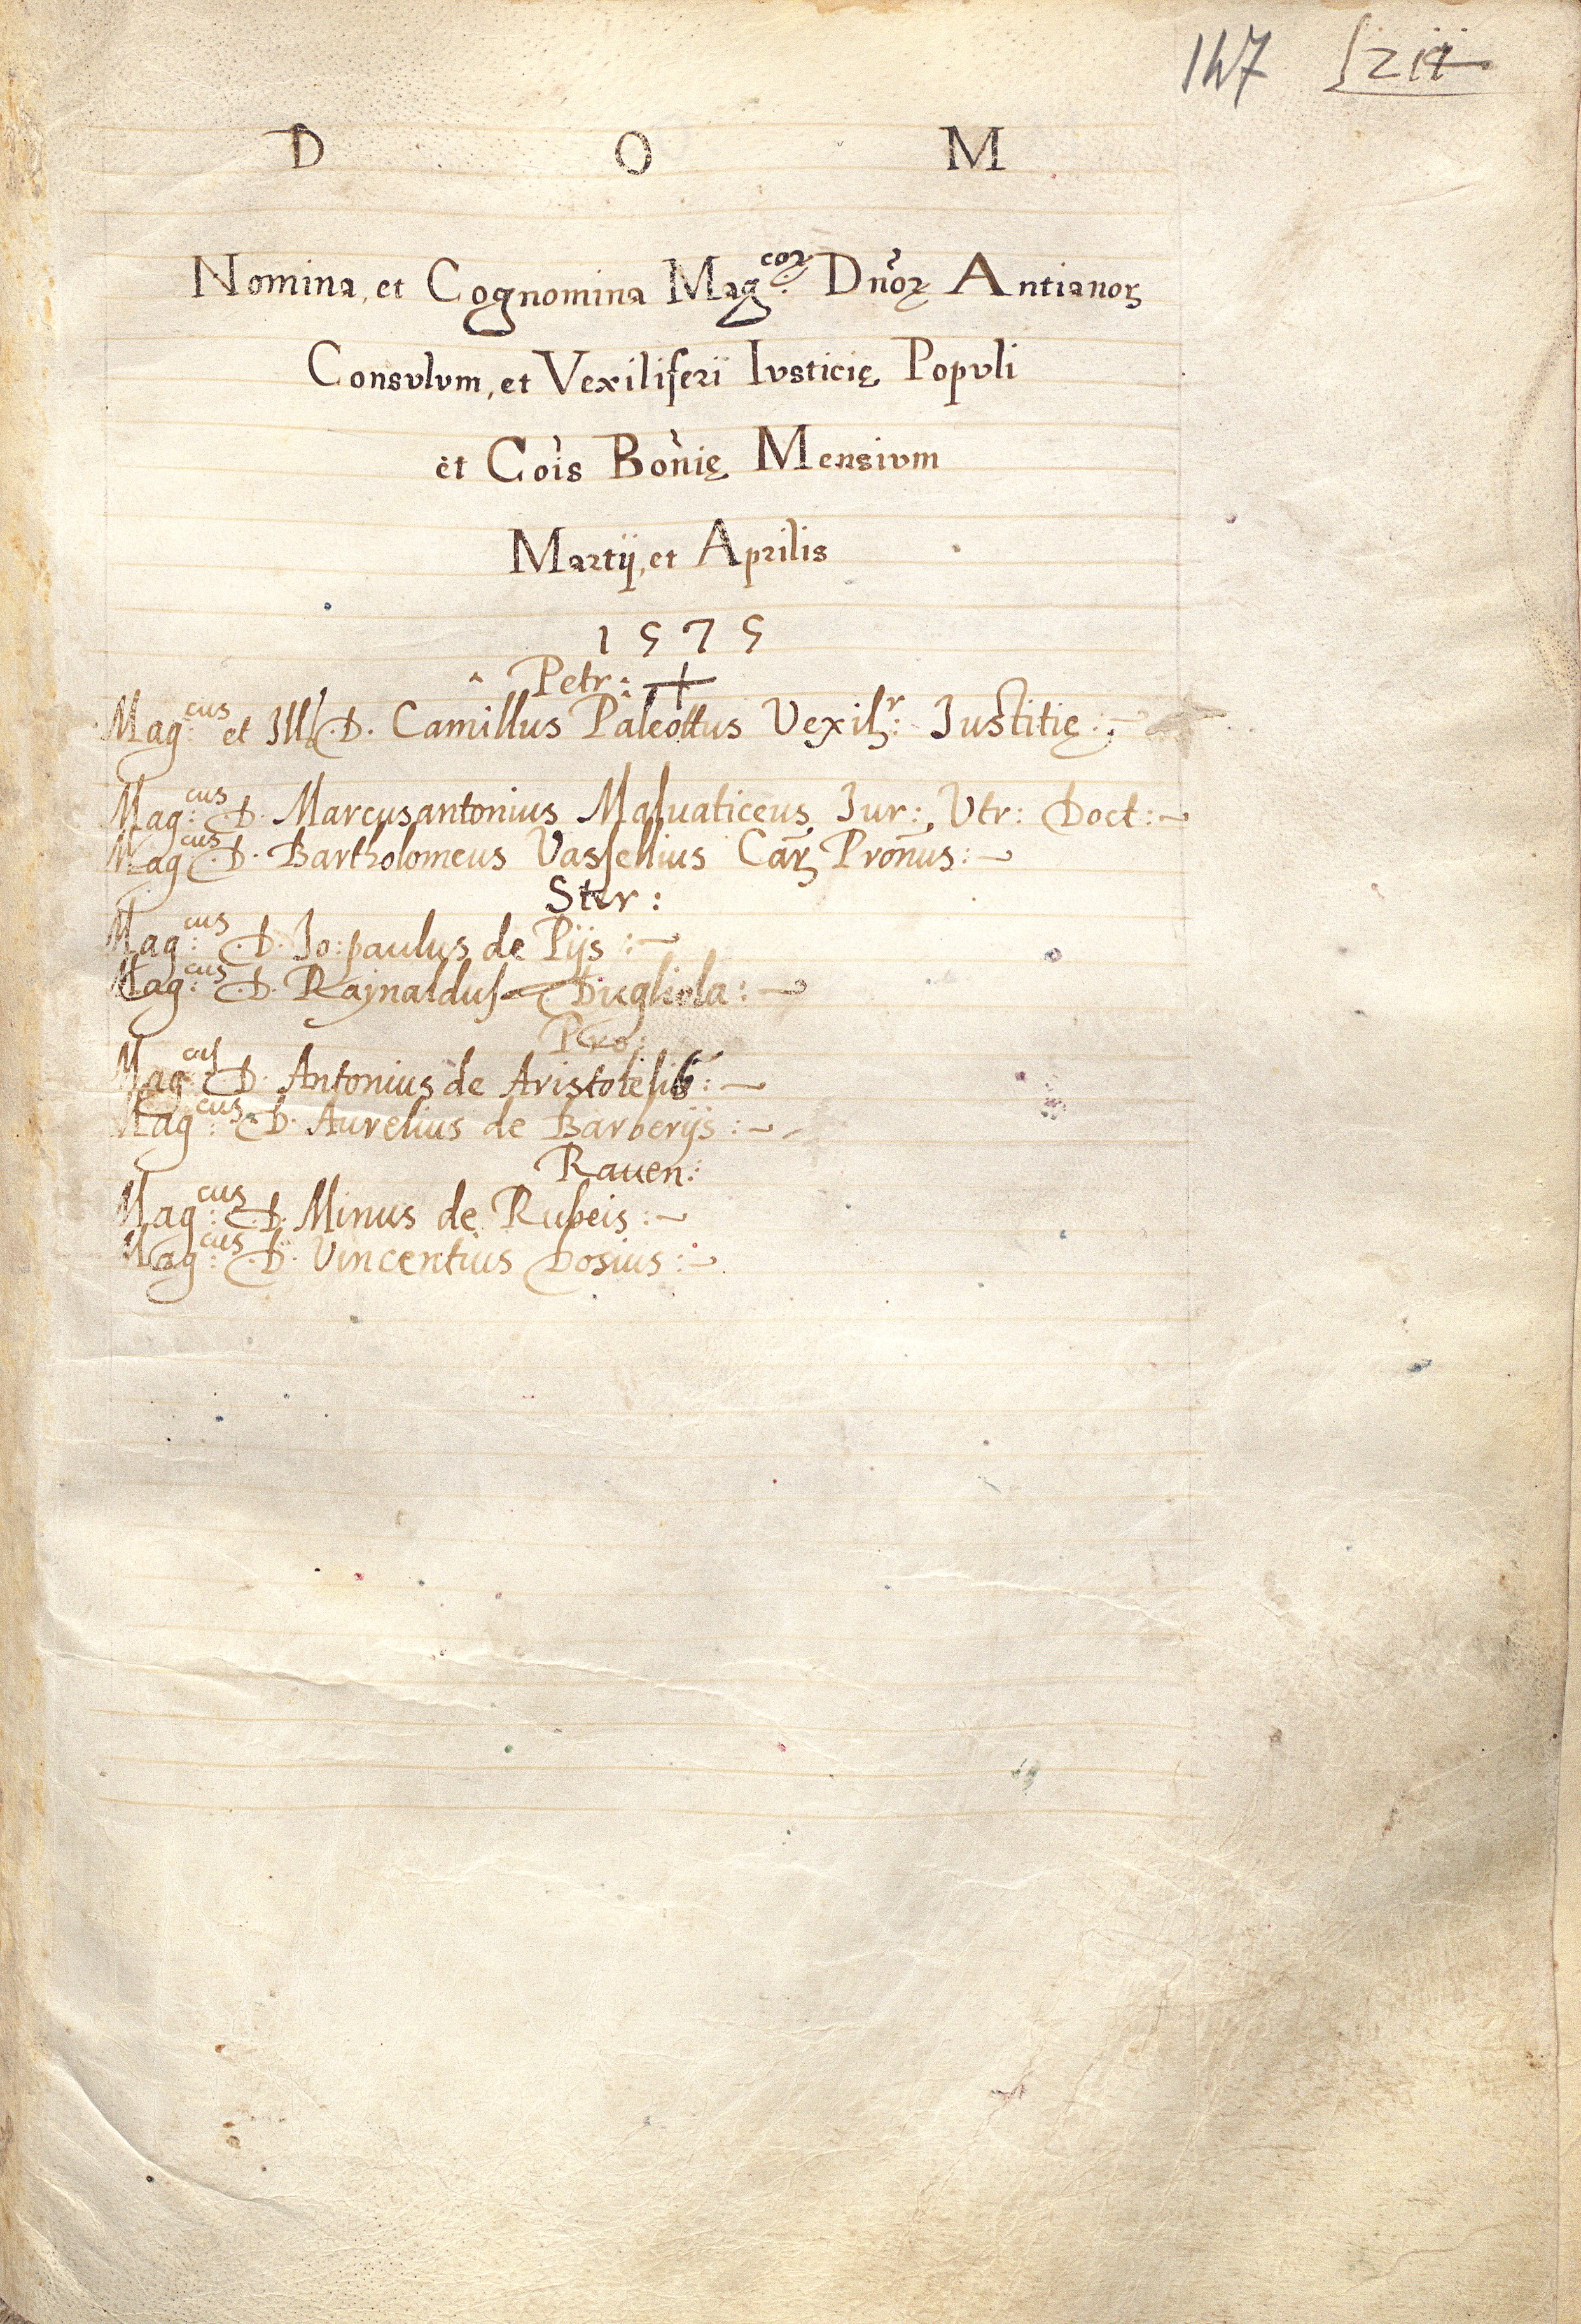 147
D O M
Nomina, et Cognomina Mag.coꝝ Dn̄oꝝ Antianoꝝ
Consvlvm, et Vexiliferi Ivsticię Popvli
et Cōis Bōnię Mensivm
Martij, et Aprilis
1575
Petr: +
Mag:cus et Ill. D. Camillus Paleottus Vexilr: Justitię :
Mag:cus D. Marcusantonius Maluaticeus Jur: Vtr: Doct:
Mag:cus D. Bartholomeus Vassellius Caꝝ Pronus:
Ster:
Mag:cus D. Jo: paulus de Pijs:
Mag:cus D. Rajnaldus Dugliola:
Pro:
Mag:cus D. Antonius de Aristotelib:
Mag:cus D. Aurelius de Barberijs:
Rauen:
Mag:cus D. Minus de Rubeis:
Mag:cus D. Vincentius Dosius: